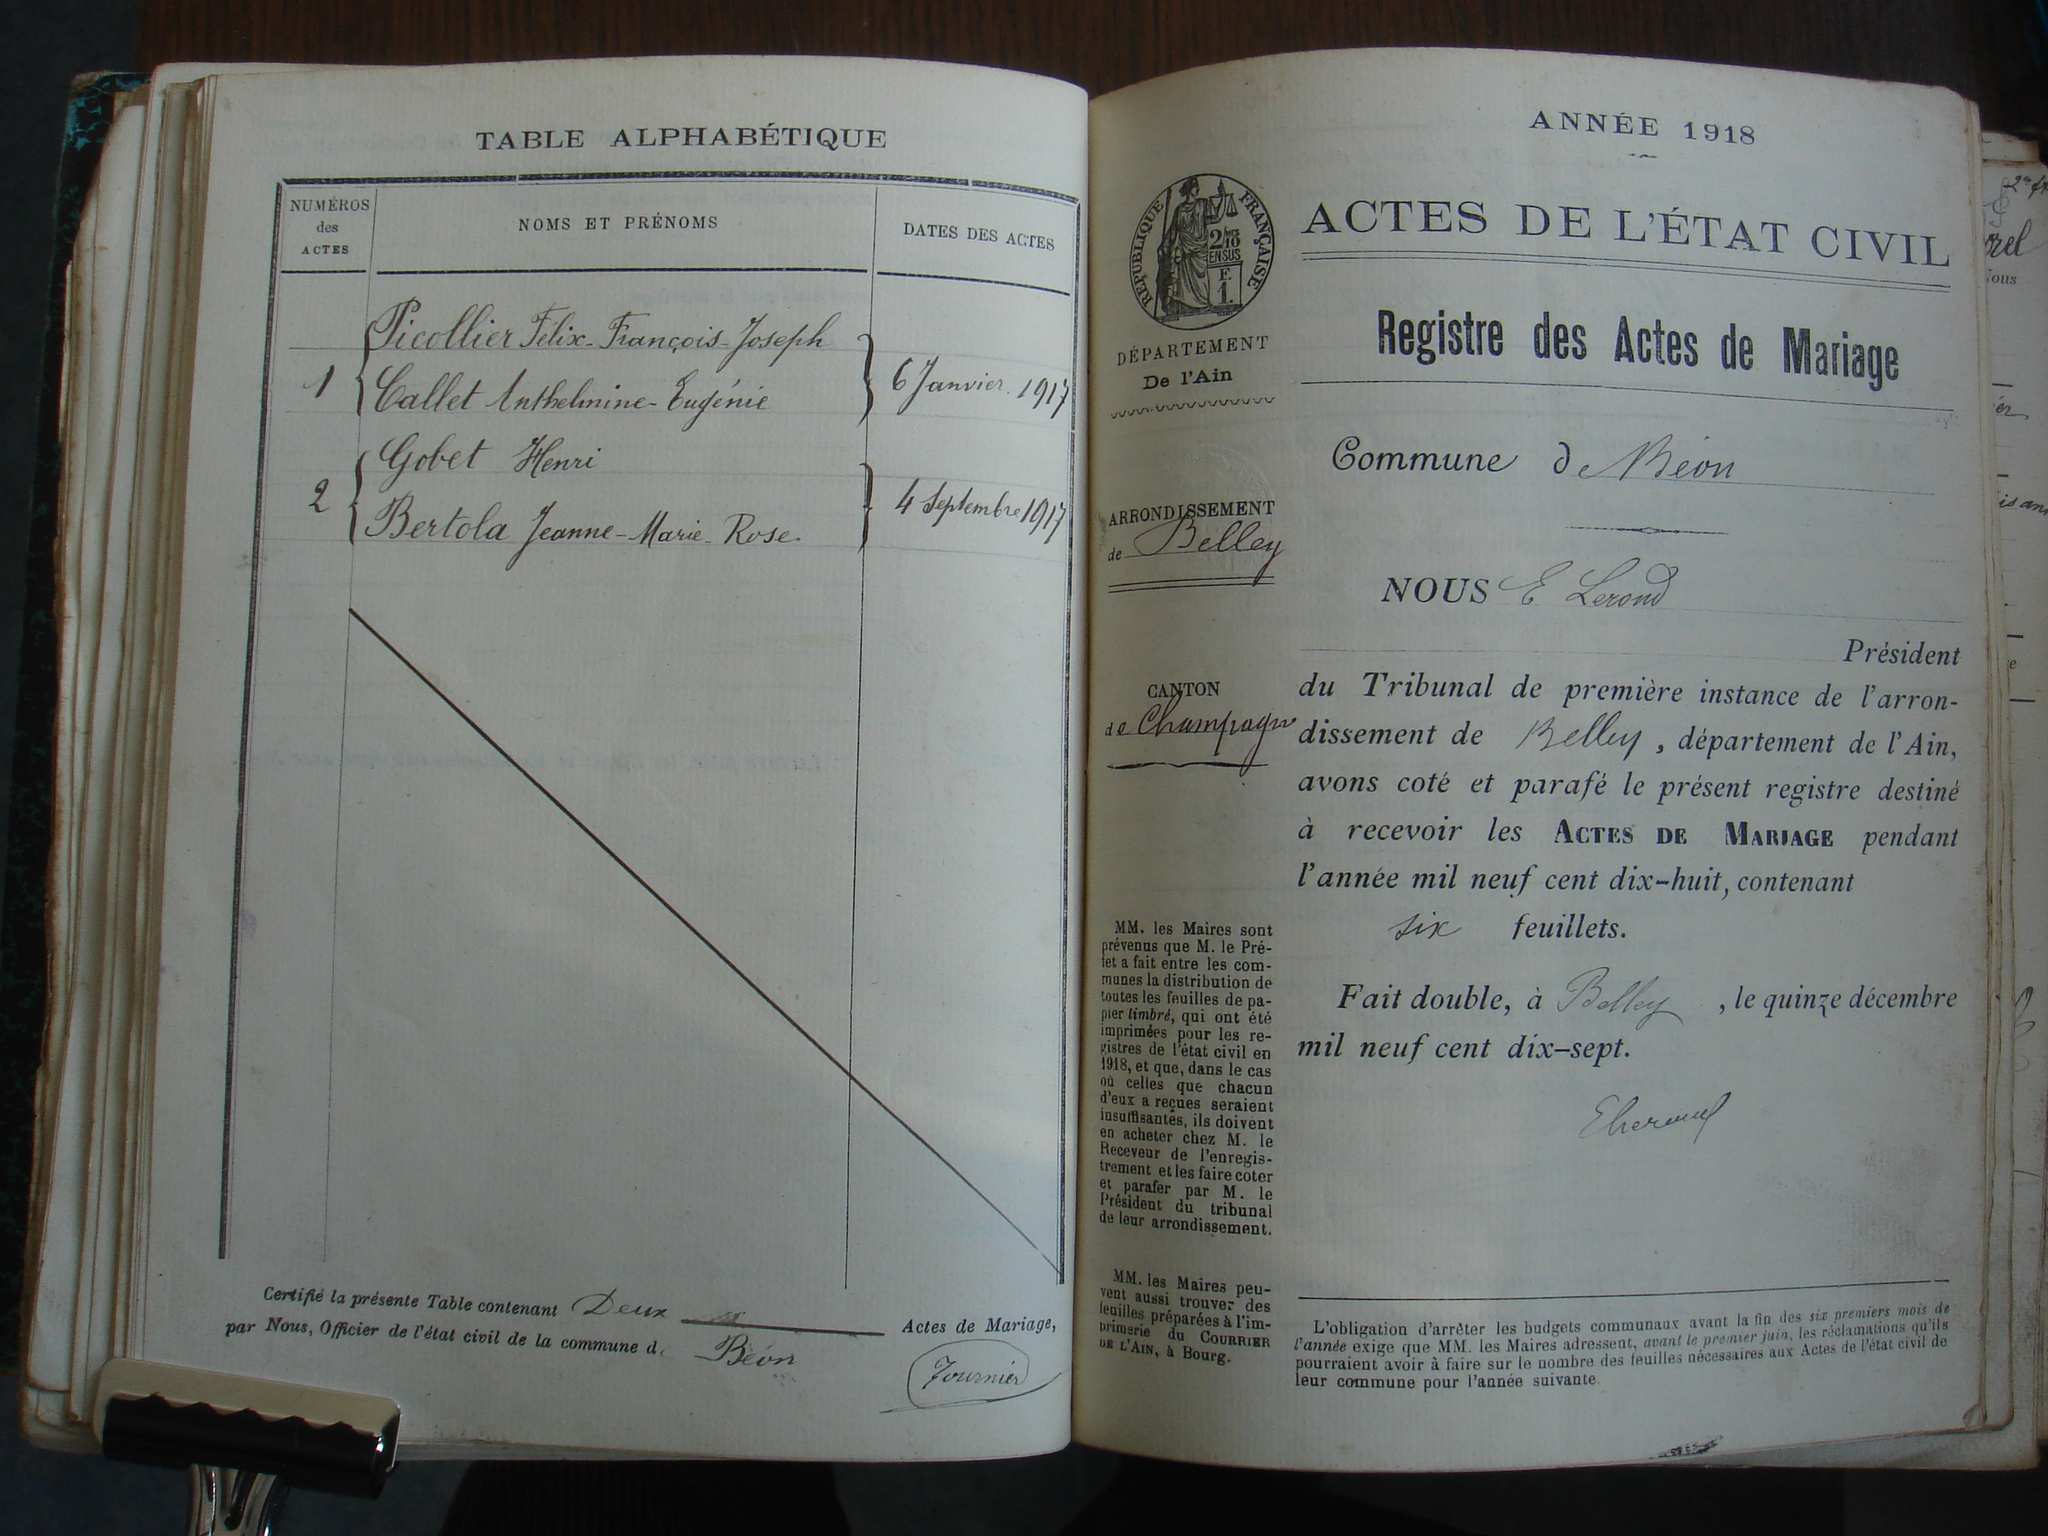 TABLE ALPHABÉTIQUE
NUMÉROS des ACTES
NOMS ET PRÉNOMS
DATES DES ACTES
Picollier Félix-François-Joseph
1
Callet Anthelmine-Eugénie
6 Janvier 1917
Gobet Henri
2
Bertola Jeanne-Marie-Rose
4 Septembre 1917
Certifié la présente Table contenant Deux Actes de Mariage,
par Nous, Officier de l'état civil de la commune de Béon
Fournier
ANNÉE 1918
RÉPUBLIQUE FRANÇAISE
2/10
EN SUS
F.
1.
ACTES DE L'ÉTAT CIVIL
Registre des Actes de Mariage
DÉPARTEMENT
De l'Ain
Commune de Béon
ARRONDISSEMENT
de Belley
NOUS E Lerond
Président
CANTON
de Champagne
du Tribunal de première instance de l'arron-
dissement de Belley, département de l'Ain,
avons coté et parafé le présent registre destiné
à recevoir les ACTES DE MARIAGE pendant
l'année mil neuf cent dix-huit, contenant
six feuillets.
Fait double, à Belley, le quinze décembre
mil neuf cent dix-sept.
MM. les Maires sont
prévenus que M. le Pré-
fet a fait entre les com-
munes la distribution de
toutes les feuilles de pa-
pier timbré, qui ont été
imprimées pour les re-
gistres de l'état civil en
1918, et que, dans le cas
où celles que chacun
d'eux a reçues seraient
insuffisantes, ils doivent
en acheter chez M. le
Receveur de l'enregis-
trement et les faire coter
et parafer par M. le
Président du tribunal
de leur arrondissement.
MM. les Maires peu-
vent aussi trouver des
feuilles préparées à l'im-
primerie du COURRIER
DE L'AIN, à Bourg.
L'obligation d'arrêter les budgets communaux avant la fin des six premiers mois de
l'année exige que MM. les Maires adressent, avant le premier juin, les réclamations qu'ils
pourraient avoir à faire sur le nombre des feuilles nécessaires aux Actes de l'état civil de
leur commune pour l'année suivante.